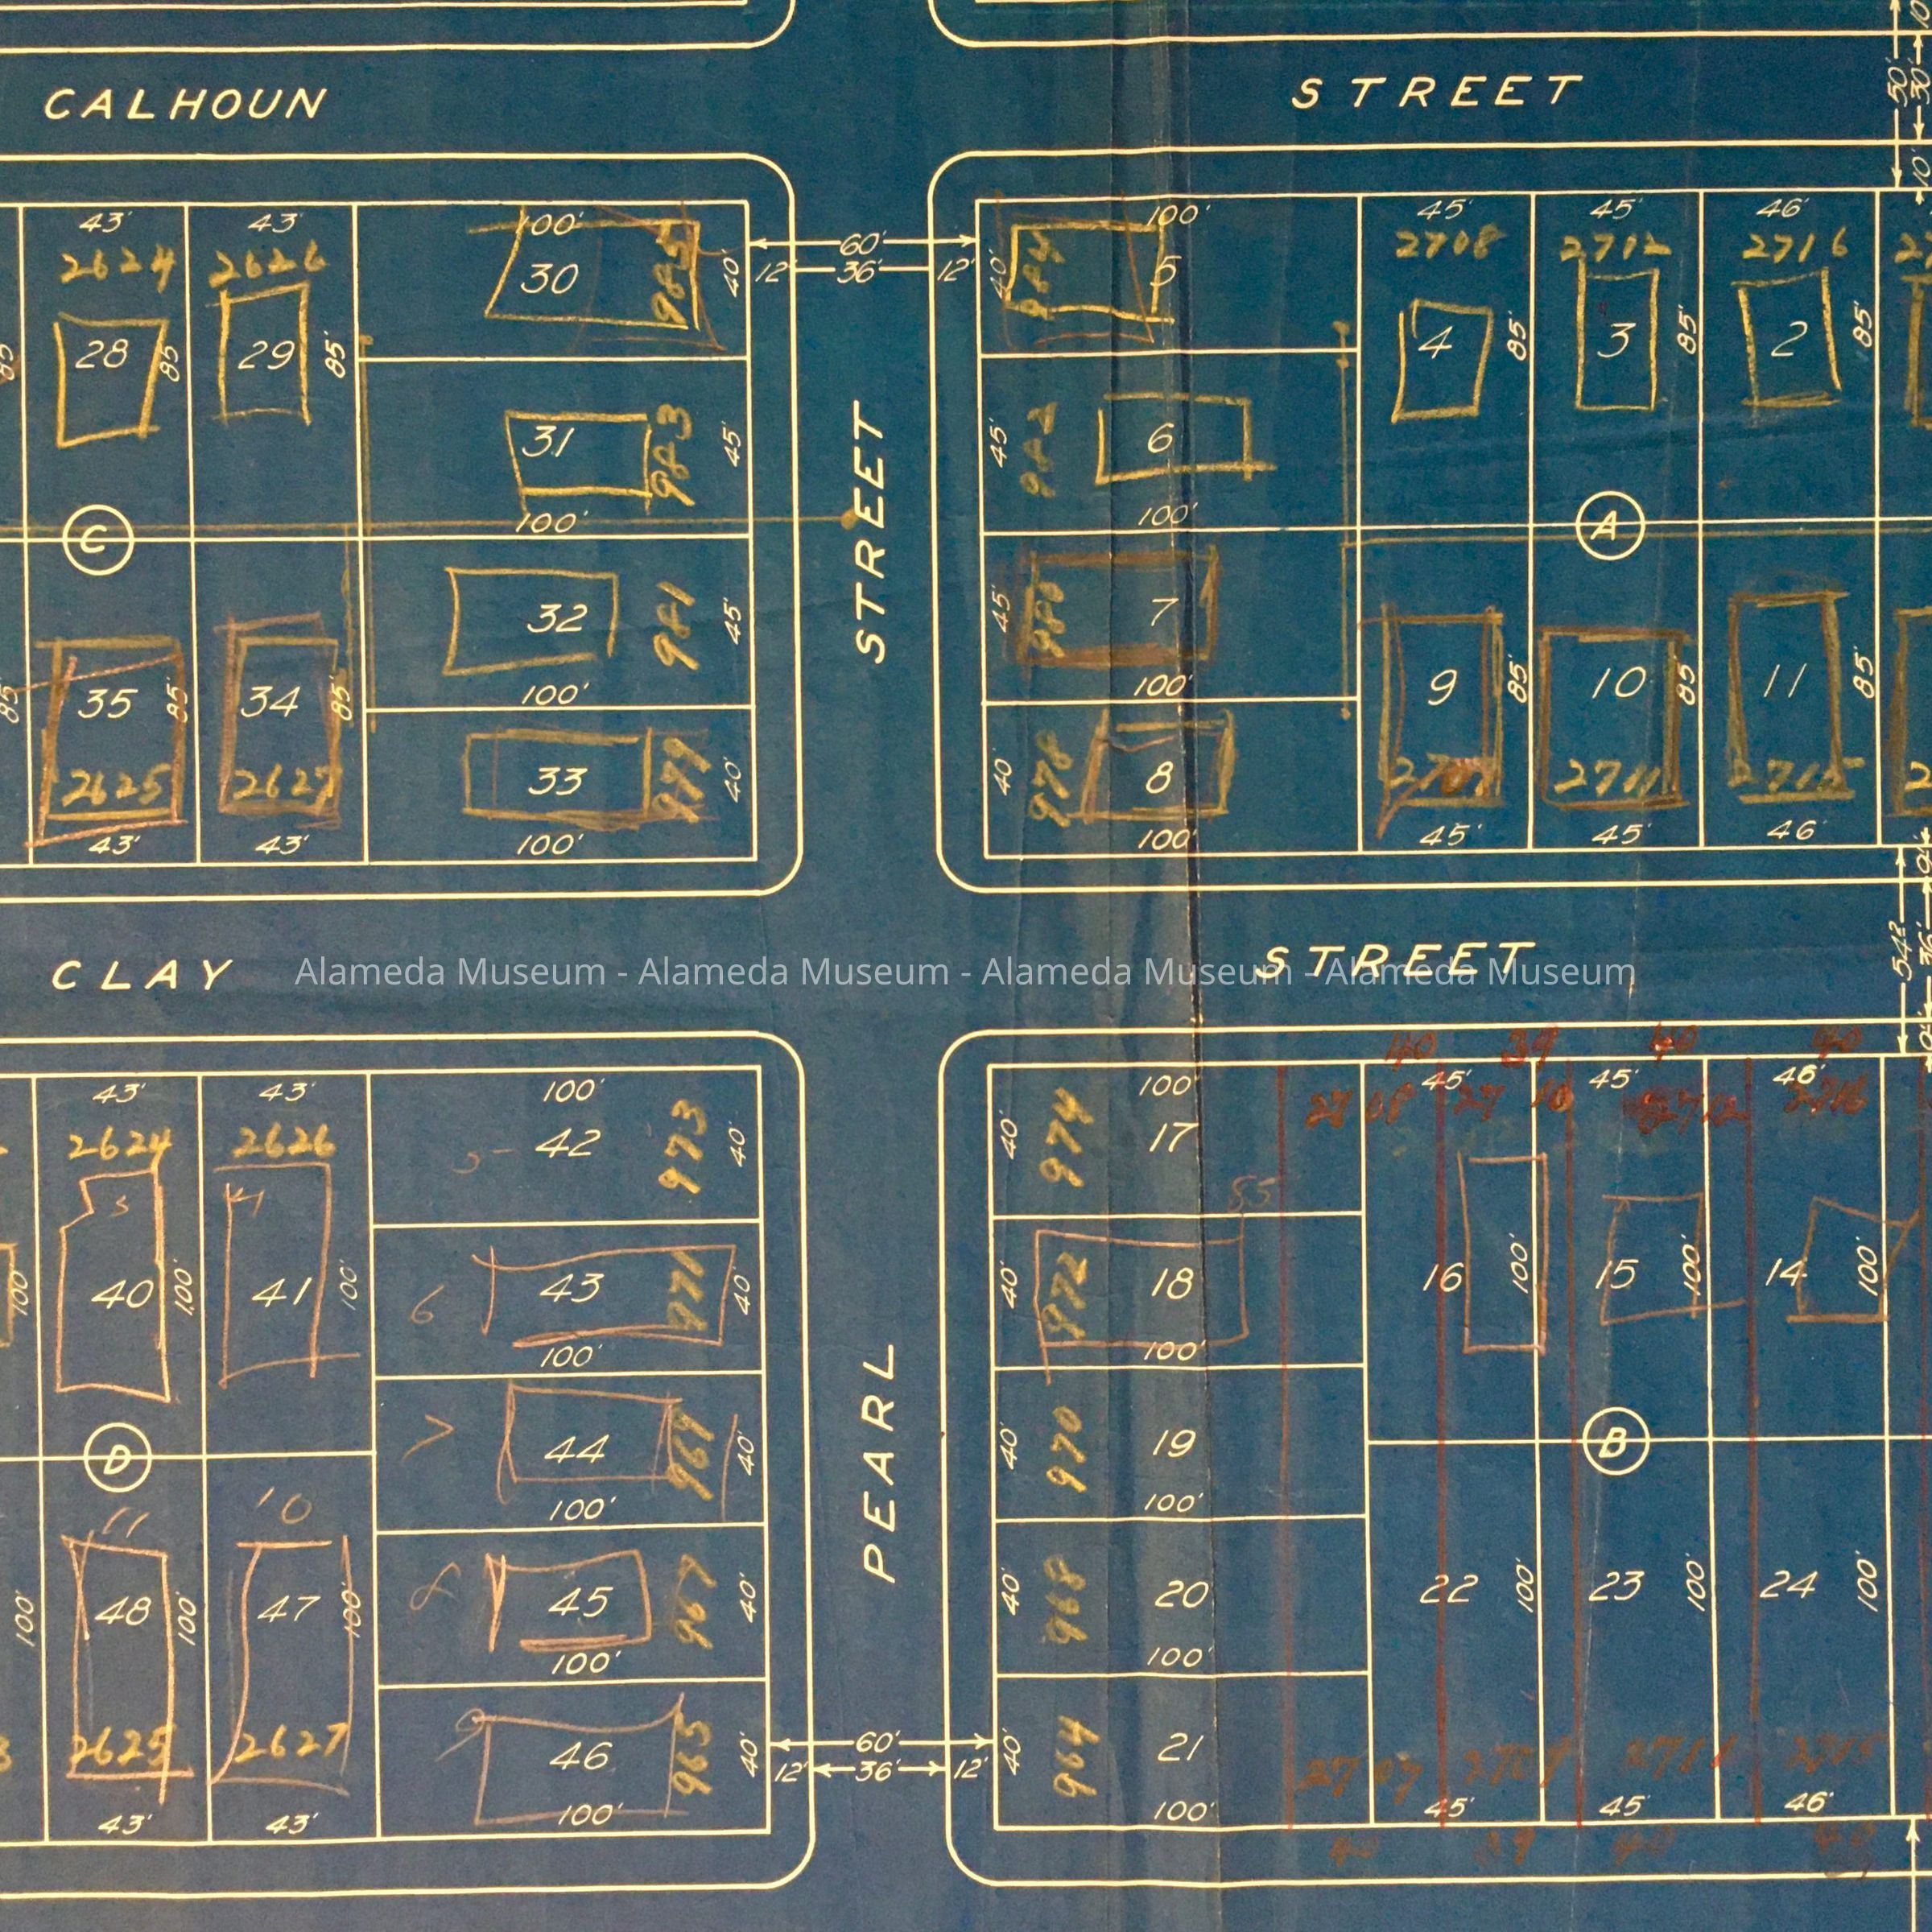 CALHOUN STREET
50'
30'
10'
43' 43' 100' 100' 45' 45' 46'
2624 2626 60' 2708 2712 2716
30 985 40' 12' 36' 12' 40' 984 5
28 85' 29 85' 4 85' 3 85' 2 85'
31 983 45' 45' 982 6
100' 100'
C STREET A
32 981 45' 45' 7
100' 100'
35 85' 34 85' 9 85' 10 85' 11 85'
2625 2627 33 979 40' 40' 978 8 2711 2715
43' 43' 100' 100' 45' 45' 46'
CLAY STREET
Alameda Museum - Alameda Museum - Alameda Museum - Alameda Museum
40 39 40 40
43' 43' 100' 100' 45' 45' 46'
2624 2626 5 42 973 40' 40' 974 17 2708 27 10 2712 2716
85
40 100' 41 100' 6 43 971 40' 40' 972 18 16 100' 15 100' 14 100'
100' 100'
D 7 44 969 40' 40' 970 19 B
11 10 100' 100'
PEARL
48 100' 47 100' 8 45 967 40' 40' 968 20 22 100' 23 100' 24 100'
100' 100'
2625 2627 9 46 965 40' 60' 40' 964 21 2707 2709 2711 2715
12' 36' 12'
43' 43' 100' 100' 45' 45' 46'
40 39 40 40